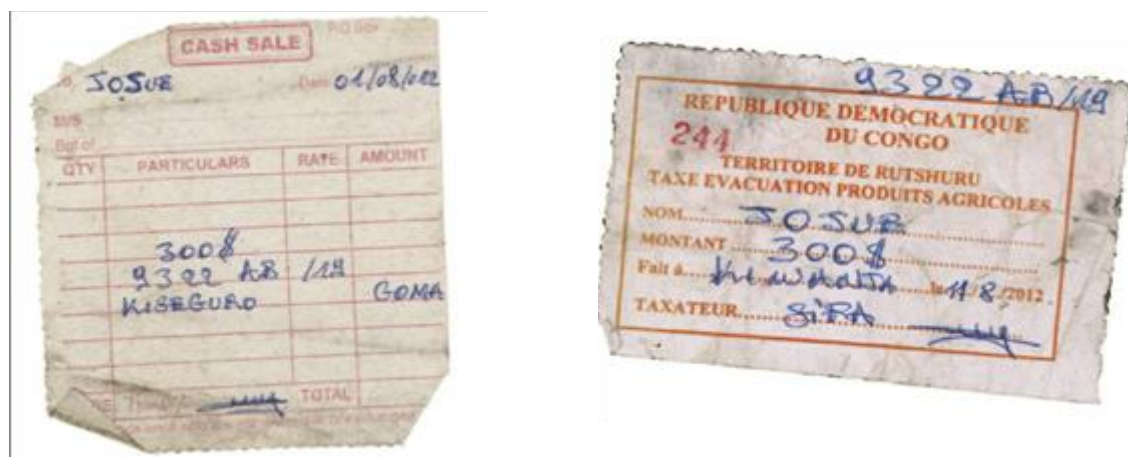 P.O Box
CASH SALE
JOSUE Date 01/08/012
M/S
QTY PARTICULARS RATE AMOUNT
300$
9322 AB /19
KISEGURO GOMA
TOTAL
9322 AB/19
REPUBLIQUE DEMOCRATIQUE
DU CONGO
244
TERRITOIRE DE RUTSHURU
TAXE EVACUATION PRODUITS AGRICOLES
NOM JOSUE
MONTANT 300$
Fait à KIWANJA le 11/8/2012
TAXATEUR